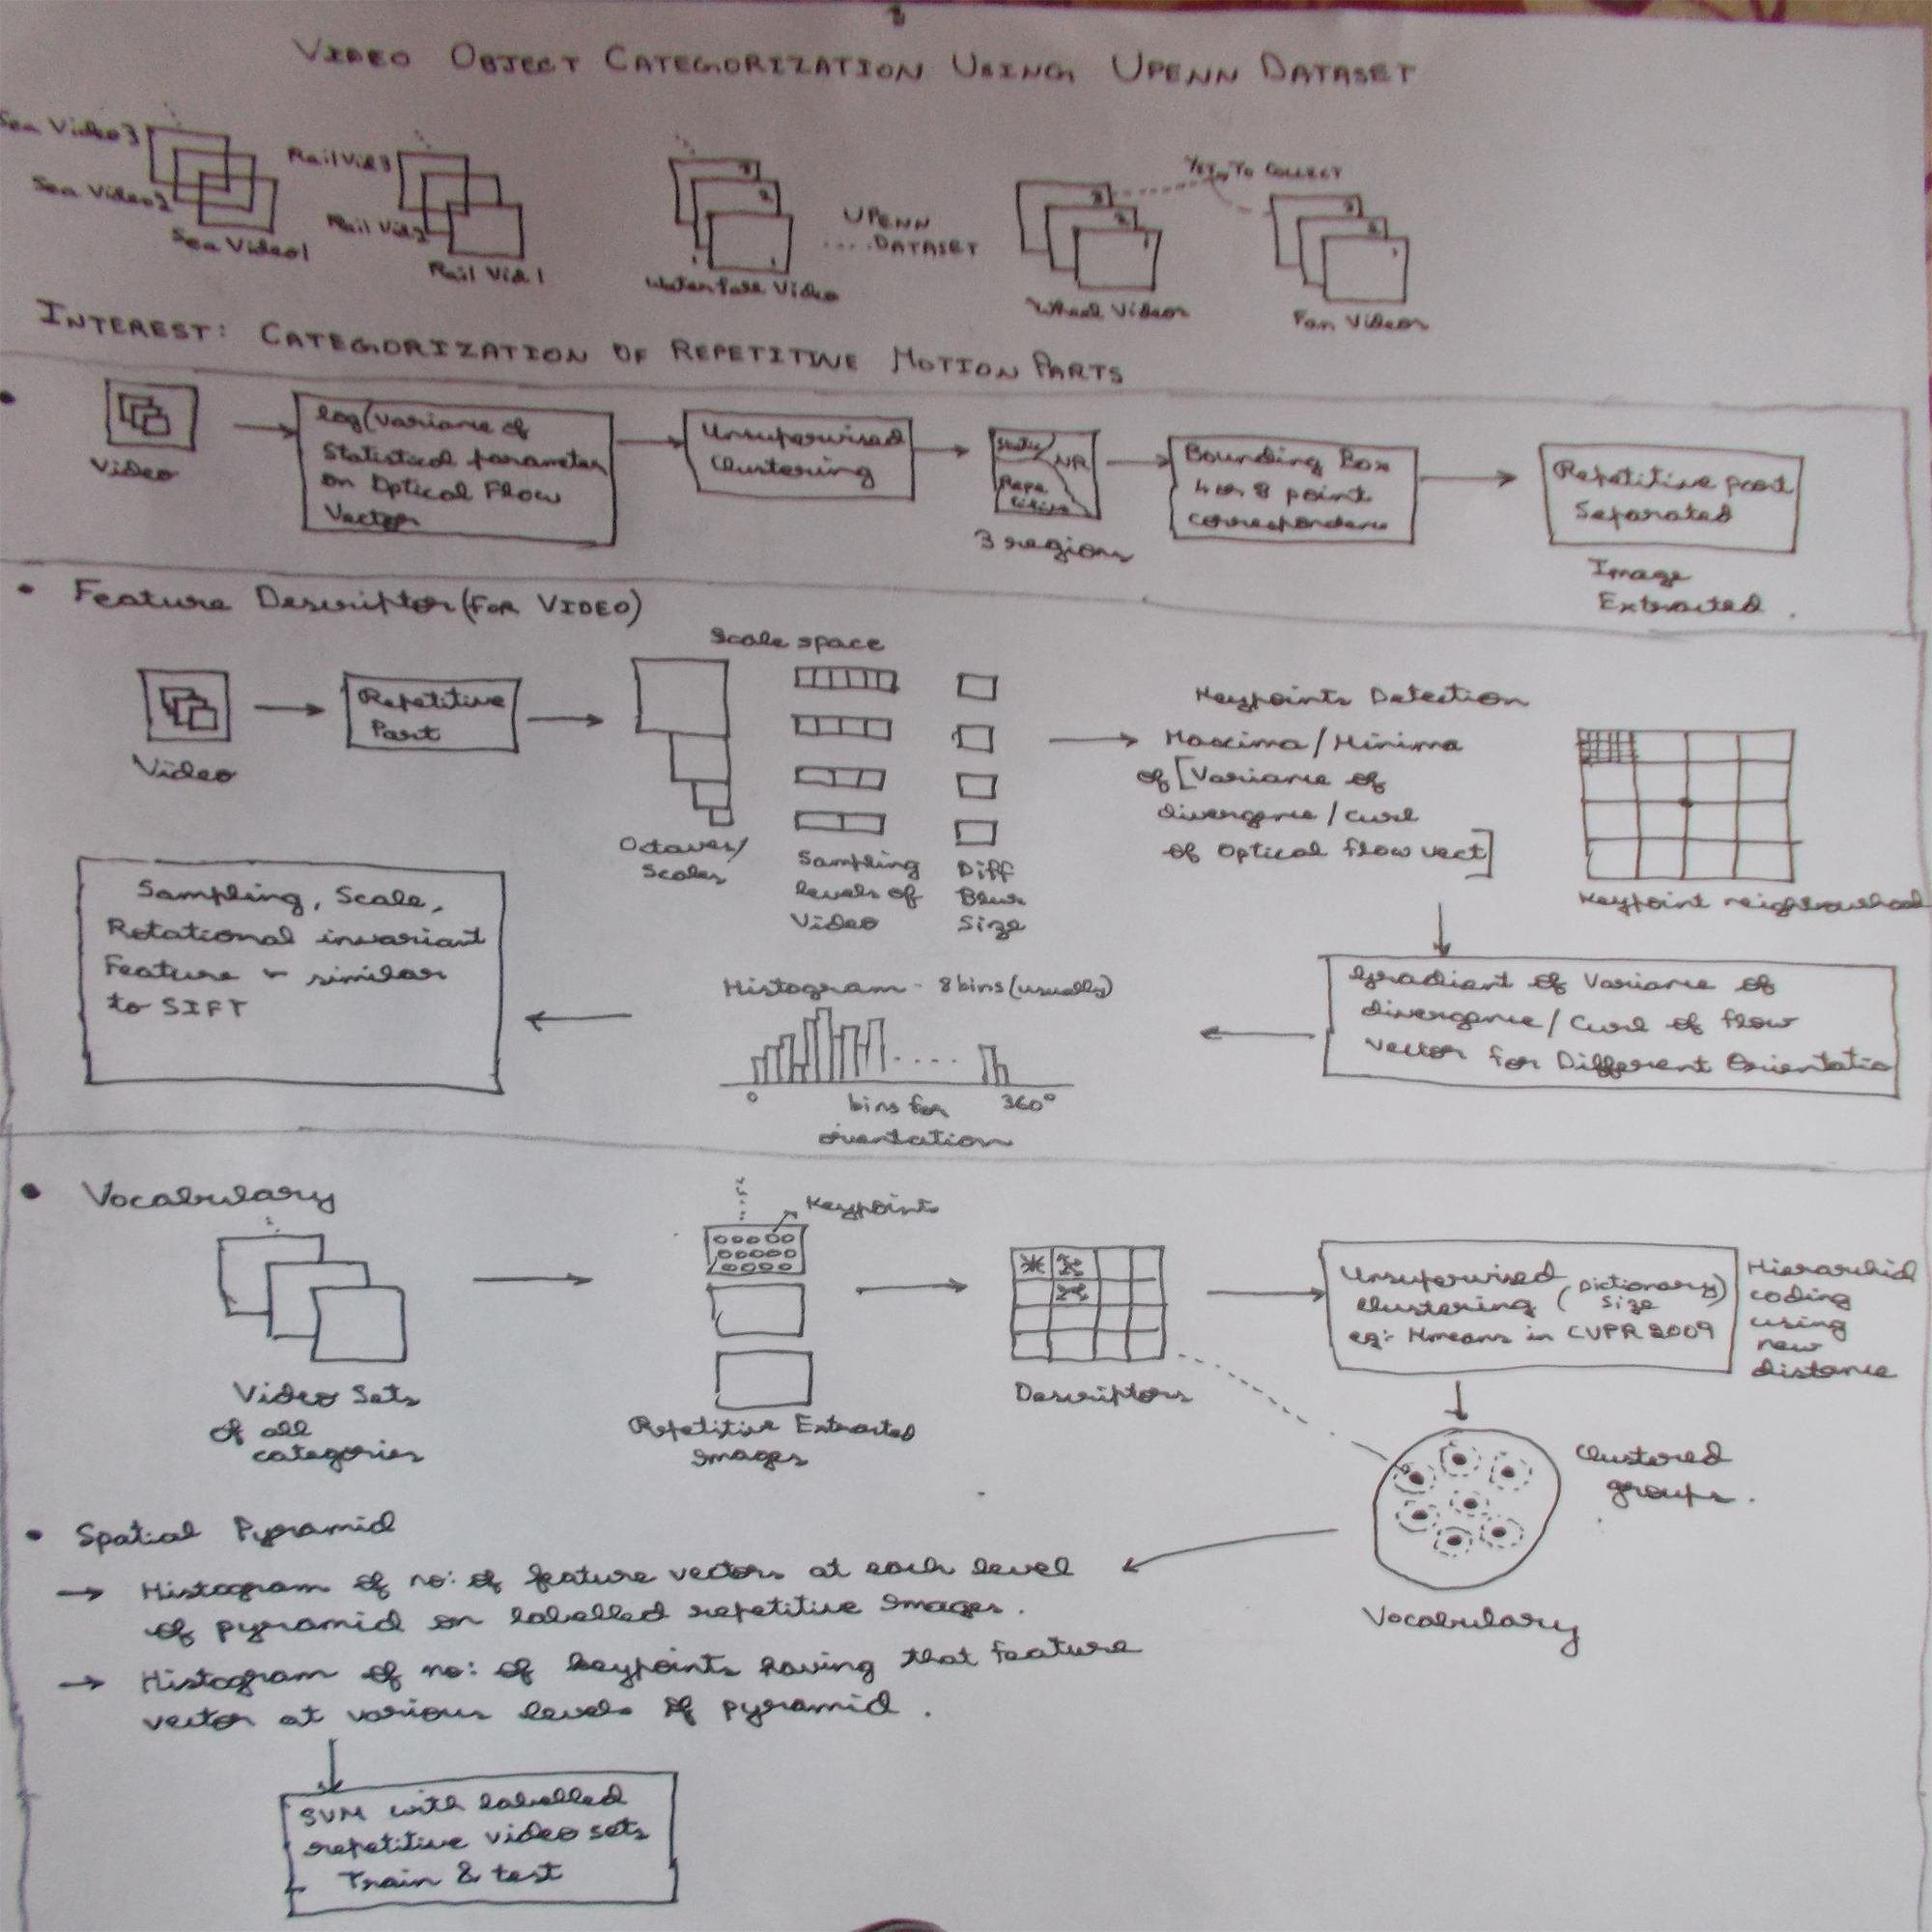 VIDEO OBJECT CATEGORIZATION USING UPENN DATASET
Sea Video3
Sea Video2
Sea Video1
Rail Vid3
Rail Vid2
Rail Vid1
3
2
1
Waterfall Video
UPENN
....DATASET
YET TO COLLECT
3
2
1
Wheel Videos
3
2
1
Fan Videos
INTEREST: CATEGORIZATION OF REPETITIVE MOTION PARTS
Video
log(Variance of
Statistical parameter
on Optical Flow
Vector
Unsupervised
Clustering
Static
NR
Repe
titive
3 regions
Bounding Box
4 or 8 point
correspondence
Repetitive part
Separated
Image
Extracted .
• Feature Descriptor (FOR VIDEO)
Video
Repetitive
Part
Scale space
Octaves/
Scales
Sampling
levels of
Video
Diff
Blur
Size
Keypoints Detection
Maxima / Minima
of [Variance of
divergence / curl
of Optical flow vect]
Keypoint neighbourhood
Gradient of Variance of
divergence / Curl of flow
vector for Different Orientatio
Histogram - 8 bins (usually)
0
bins for
360°
orientation
Sampling, Scale,
Rotational invariant
Feature - similar
to SIFT
• Vocabulary
Video Sets
of all
categories
Keypoints
Repetitive Extracted
Images
Descriptors
Unsupervised
Clustering (Dictionary Size)
eg:- Kmeans in CVPR 2009
Hierarchid
coding
using
new
distance
Clustered
groups .
Vocabulary
• Spatial Pyramid
→ Histogram of no: of feature vectors at each level
of pyramid on labelled repetitive Images .
→ Histogram of no: of keypoints having that feature
vector at various levels of pyramid .
SVM with labelled
repetitive video sets
- Train & test